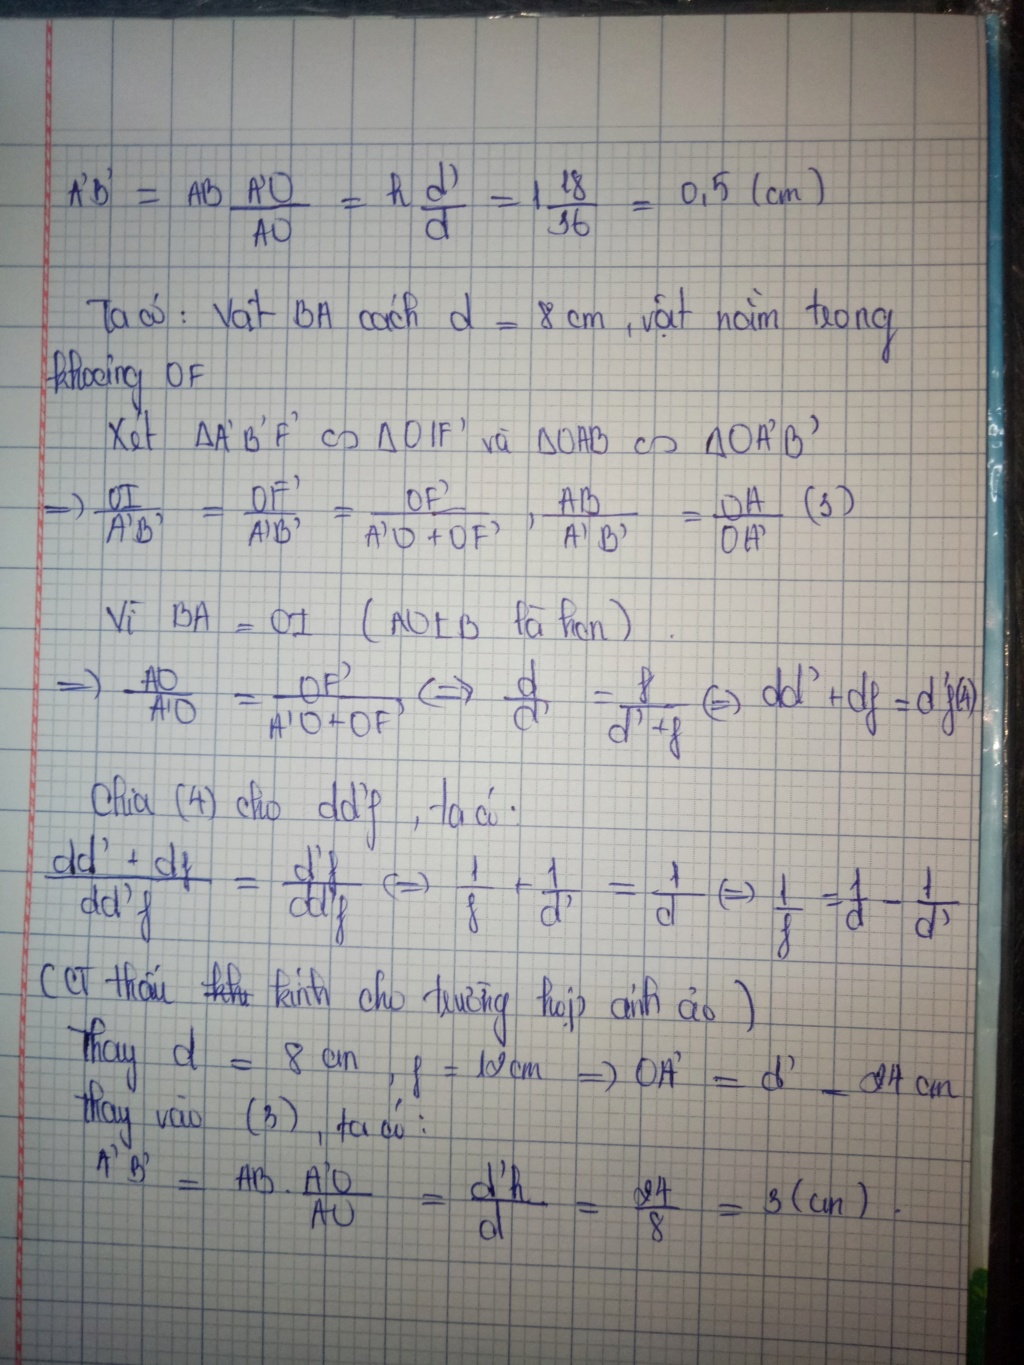 A'B' = AB A'O/AO = h d'/d = 1 18/36 = 0,5 (cm)
Ta có: Vật BA cách d = 8 cm, vật nằm trong
khoảng OF
Xét ΔA'B'F' ∽ ΔOIF' và ΔOAB ∽ ΔOA'B'
=> OI/A'B' = OF'/A'B' = OF'/A'O + OF', AB/A'B' = OA/OA' (3)
Vì BA = OI (AOIB là hcn).
=> AO/A'O = OF'/A'O + OF' <=> d/d' = f/d' + f <=> dd' + df = d'f (4)
Chia (4) cho dd'f, ta có:
dd' + df/dd'f = d'f/dd'f <=> 1/f + 1/d' = 1/d <=> 1/f = 1/d - 1/d'
(CT thấu kính cho trường hợp ảnh ảo)
Thay d = 8 cm, f = 12cm => OA' = d' = 24 cm
Thay vào (3), ta có:
A'B' = AB. A'O/AO = d'h/d = 24/8 = 3 (cm).